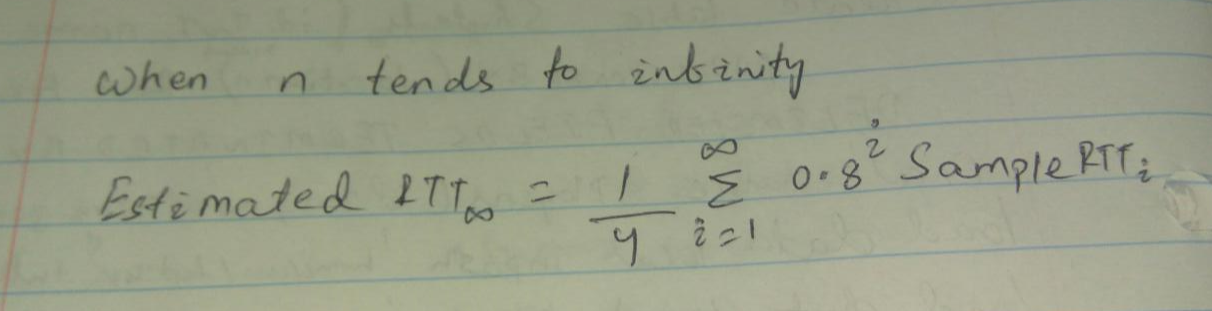 when n tends to infinity
Estimated RTT∞ = 1/4 ∞Σi=1 0.8^i SampleRTTi